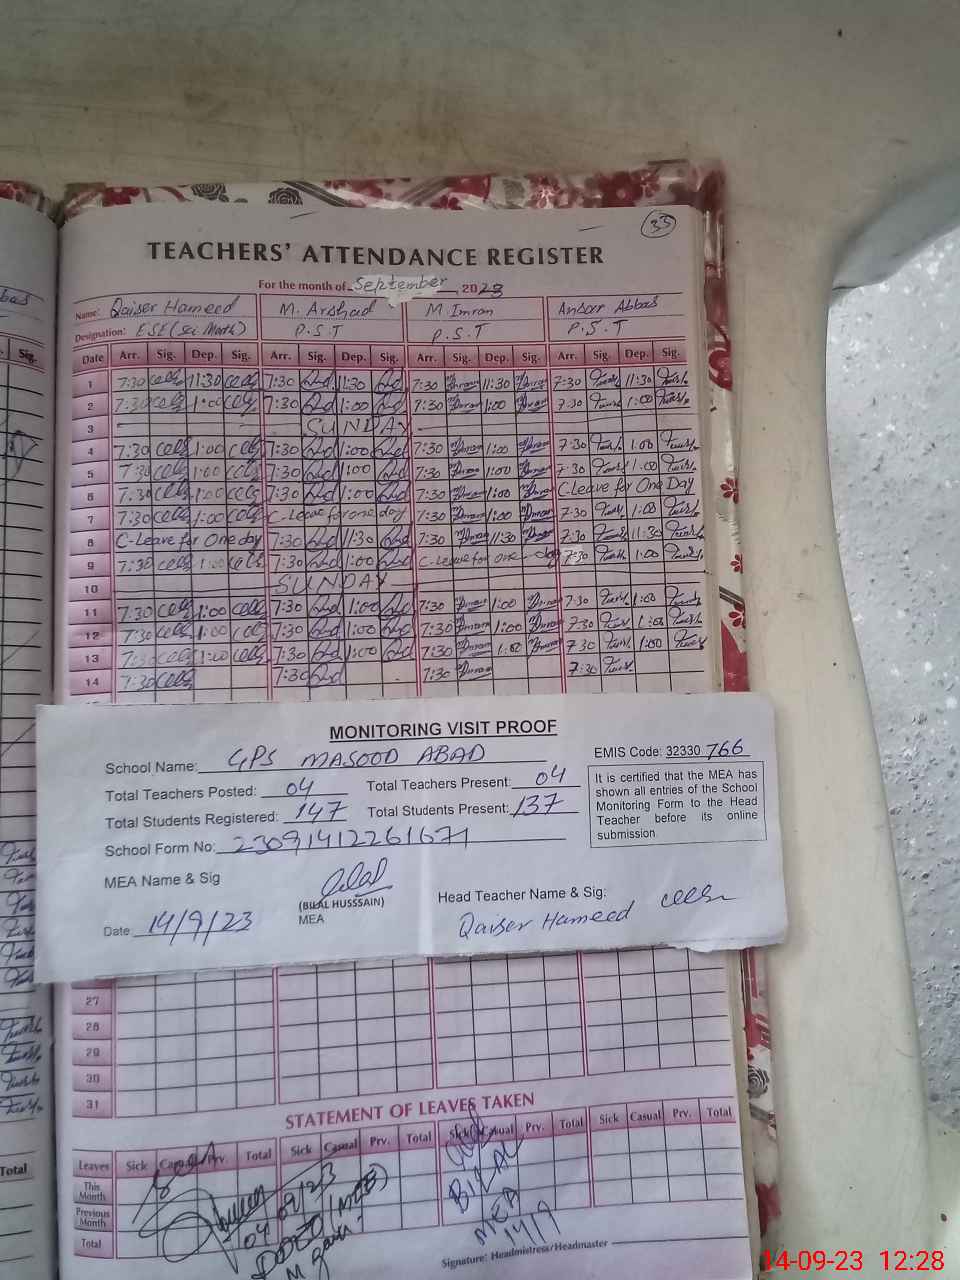 33
TEACHERS' ATTENDANCE REGISTER
For the month of September, 2023
Name: Qaiser Hameed M. Arshad M Imran Ansar Abbas
Designation: ESE (Sci Math) P.S.T P.S.T P.S.T
Date Arr. Sig. Dep. Sig. Arr. Sig. Dep. Sig. Arr. Sig. Dep. Sig. Arr. Sig. Dep. Sig.
1 7:30 11:30 7:30 11:30 7:30 11:30 7:30 11:30
2 7:30 1:00 7:30 1:00 7:30 1:00 7:30 1:00
3 SUNDAY
4 7:30 1:00 7:30 1:00 7:30 1:00 7:30 1:00
5 7:30 1:00 7:30 1:00 7:30 1:00 7:30 1:00
6 7:30 1:00 7:30 1:00 7:30 1:00 C-Leave for One Day
7 7:30 1:00 C-Leave for one day 7:30 1:00 7:30 1:00
8 C-Leave for One day 7:30 11:30 7:30 11:30 7:30 11:30
9 7:30 1:00 7:30 1:00 C-Leave for one day 7:30 1:00
10 SUNDAY
11 7:30 1:00 7:30 1:00 7:30 1:00 7:30 1:00
12 7:30 1:00 7:30 1:00 7:30 1:00 7:30 1:00
13 7:30 1:00 7:30 1:00 7:30 1:00 7:30 1:00
14 7:30 7:30 7:30 7:30
MONITORING VISIT PROOF
School Name: GPS MASOOD ABAD
EMIS Code: 32330 766
Total Teachers Posted: 04 Total Teachers Present: 04
Total Students Registered: 147 Total Students Present: 137
School Form No: 23091412261671
It is certified that the MEA has
shown all entries of the School
Monitoring Form to the Head
Teacher before its online
submission.
MEA Name & Sig
(BILAL HUSSSAIN)
MEA
Head Teacher Name & Sig:
Qaiser Hameed
Date 14/9/23
27
28
29
30
31
STATEMENT OF LEAVES TAKEN
Leaves Sick Casual Prv. Total Sick Casual Prv. Total Sick Casual Prv. Total Sick Casual Prv. Total
This Month
Previous Month
Total
04/09/23
BILAL
MEA
14/9
Signature: Headmistress/Headmaster
Sig.
Total
14-09-23 12:28